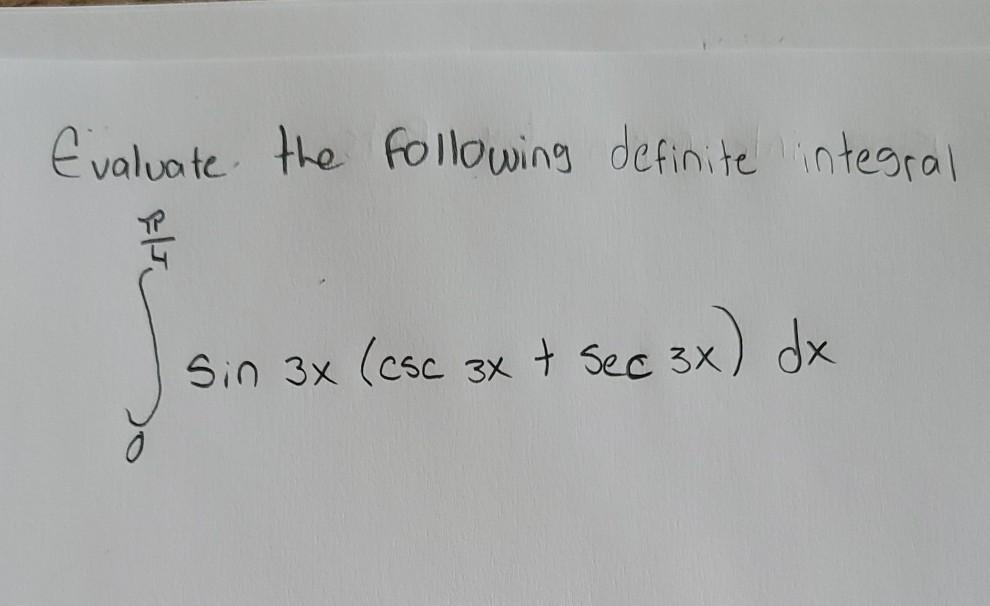 Evaluate the following definite integral
π/4
∫ sin 3x (csc 3x + sec 3x) dx
0